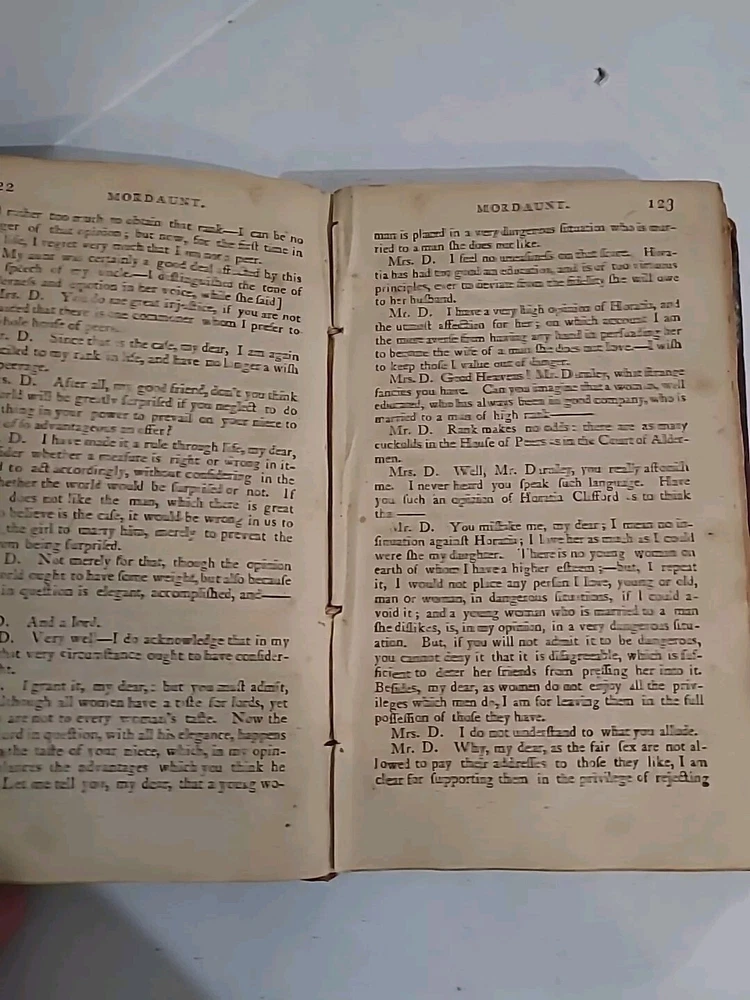 22
MORDAUNT.
rather too much to obtain that rank—I can be no
ger of that opinion; but now, for the first time in
life, I regret very much that I am not a peer.
My aunt was certainly a good deal affected by this
speech of my uncle.—I distinguished the tone of
and emotion in her voice, while she said]
Mrs. D. You do me great injustice, if you are not
that there is one commoner whom I prefer to
whole house of peers.
r. D. Since that is the case, my dear, I am again
ciled to my rank in life, and have no longer a wish
peerage.
s. D. After all, my good friend, don't you think
orld will be greatly surprised if you neglect to do
thing in your power to prevail on your niece to
of so advantageous an offer?
D. I have made it a rule through life, my dear,
sider whether a measure is right or wrong in it-
d to act accordingly, without considering in the
hether the world would be surprised or not. If
does not like the man, which there is great
believe is the case, it would be wrong in us to
the girl to marry him, merely to prevent the
om being surprised.
D. Not merely for that, though the opinion
orld ought to have some weight, but also because
in question is elegant, accomplished, and——
D. And a lord.
D. Very well—I do acknowledge that in my
that very circumstance ought to have consider-
ht.
I grant it, my dear,: but you must admit,
lthough all women have a taste for lords, yet
are not to every woman's taste. Now the
ord in question, with all his elegance, happens
the taste of your niece, which, in my opin-
the advantages which you think he
Let me tell you, my dear, that a young wo-
MORDAUNT.
123
man is placed in a very dangerous situation who is mar-
ried to a man she does not like.
Mrs. D. I feel no uneasiness on that score. Hora-
tia has had too good an education, and is of too virtuous
principles, ever to deviate from the fidelity she will owe
to her husband.
Mr. D. I have a very high opinion of Horatia, and
the utmost affection for her; on which account I am
the more averse from having any hand in persuading her
to become the wife of a man she does not love—I wish
to keep those I value out of danger.
Mrs. D. Good Heavens! Mr. Darnley, what strange
fancies you have. Can you imagine that a woman, well
educated, who has always been in good company, who is
married to a man of high rank——
Mr. D. Rank makes no odds: there are as many
cuckolds in the House of Peers as in the Court of Alder-
men.
Mrs. D. Well, Mr. Darnley, you really astonish
me. I never heard you speak such language. Have
you such an opinion of Horatia Clifford as to think
tha ——
Mr. D. You mistake me, my dear; I mean no in-
sinuation against Horatia; I love her as much as I could
were she my daughter. There is no young woman on
earth of whom I have a higher esteem;—but, I repeat
it, I would not place any person I love, young or old,
man or woman, in dangerous situations, if I could a-
void it; and a young woman who is married to a man
she dislikes, is, in my opinion, in a very dangerous situ-
ation. But, if you will not admit it to be dangerous,
you cannot deny it that it is disagreeable, which is suf-
ficient to deter her friends from pressing her into it.
Besides, my dear, as women do not enjoy all the priv-
ileges which men do, I am for leaving them in the full
possession of those they have.
Mrs. D. I do not understand to what you allude.
Mr. D. Why, my dear, as the fair sex are not al-
lowed to pay their addresses to those they like, I am
clear for supporting them in the privilege of rejecting